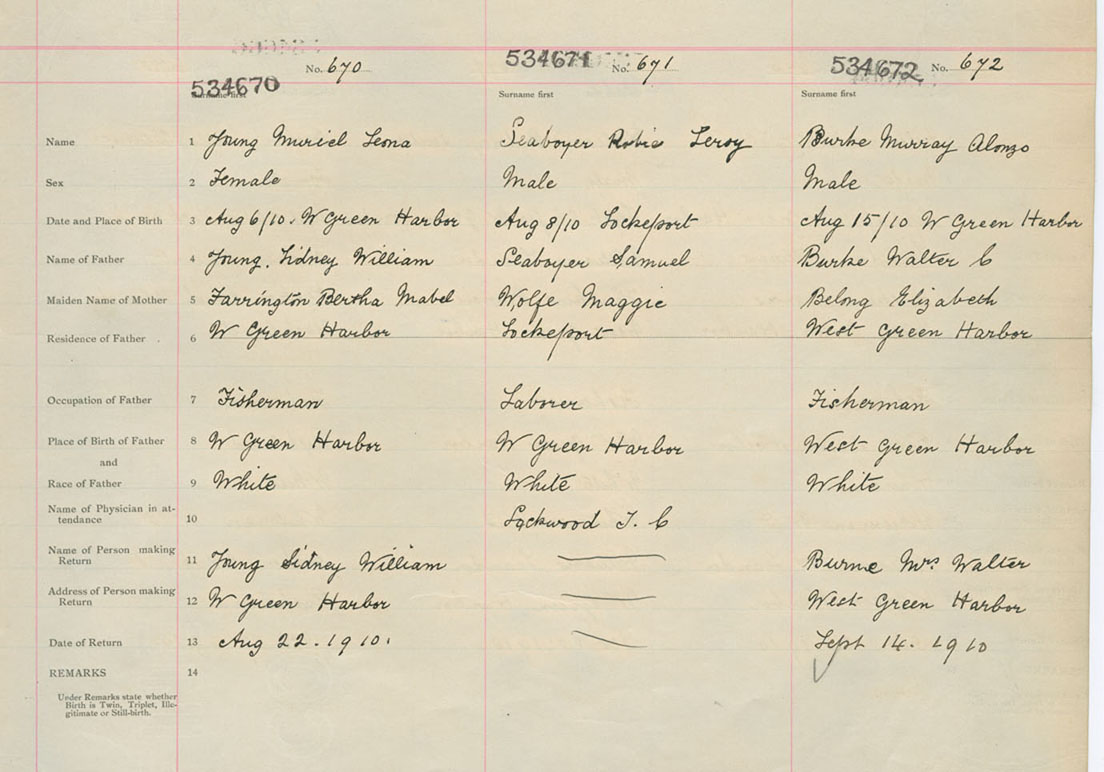 No. 670 534671 No. 671 534672 No. 672
534670
Surname first Surname first Surname first
Name 1 Young Muriel Leona Seaboyer Robie Leroy Burke Murray Alonzo
Sex 2 Female Male Male
Date and Place of Birth 3 Aug 6/10. W Green Harbor Aug 8/10 Lockeport Aug 15/10 W Green Harbor
Name of Father 4 Young, Sidney William Seaboyer Samuel Burke Walter C
Maiden Name of Mother 5 Farrington Bertha Mabel Wolfe Maggie Belong Elizabeth
Residence of Father 6 W Green Harbor Lockeport West Green Harbor
Occupation of Father 7 Fisherman Laborer Fisherman
Place of Birth of Father 8 W Green Harbor W Green Harbor West Green Harbor
and
Race of Father 9 White White White
Name of Physician in at-
tendance 10 Lockwood T. C
Name of Person making
Return 11 Young Sidney William Burne Mrs Walter
Address of Person making
Return 12 W Green Harbor West Green Harbor
Date of Return 13 Aug 22. 1910. Sept 14. 1910
REMARKS 14
Under Remarks state whether
Birth is Twin, Triplet, Ille-
gitimate or Still-birth.